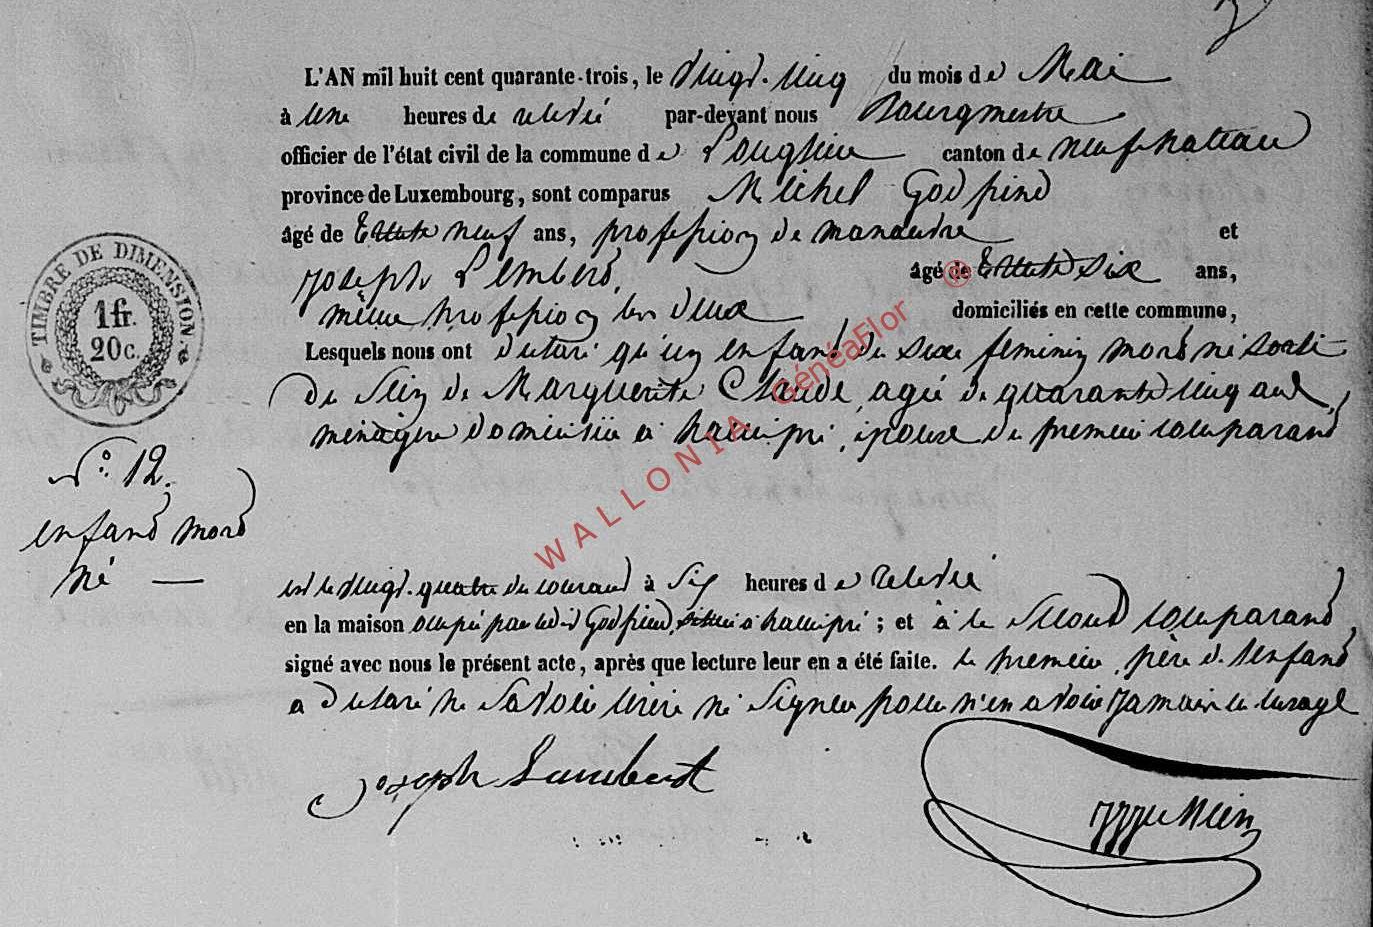 L'AN mil huit cent quarante-trois, le vingt-cinq du mois de Mai
à une heures de relevée par-devant nous Bourgmestre
officier de l'état civil de la commune de Longlier canton de neufchateau
province de Luxembourg, sont comparus Michel Godfrind
âgé de trente neuf ans, profession de manœuvre et
Joseph Lambert, âgé de trente six ans,
même profession les deux domiciliés en cette commune,
Lesquels nous ont déclaré qu'un enfant du sexe feminin mort né sorti
du sein de Marguerite Claude, agée de quarante cinq ans,
ménagère domiciliée à hamipré, épouse du premier comparant
TIMBRE DE DIMENSION.
1 fr.
20 c.
N° 12.
enfant mort
né —
est le vingt-quatre du courant à six heures de relevée
en la maison occupée par ledit Godfrind, située à hamipré ; et à le second comparant,
signé avec nous le présent acte, après que lecture leur en a été faite. le premier, père de l'enfant
a déclaré ne savoir écrire ni signer pour n'en avoir jamais eu l'usage
Joseph Lambert
WALLONIA GénéaFlor ®